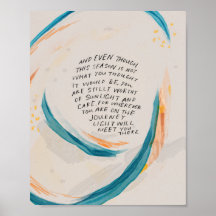 AND EVEN THOUGH
THIS SEASON IS NOT
WHAT YOU THOUGHT
IT WOULD BE, YOU
ARE STILL WORTHY
OF SUNLIGHT AND
CARE FOR WHEREVER
YOU ARE ON THE
JOURNEY
LIGHT WILL
MEET YOU
THERE